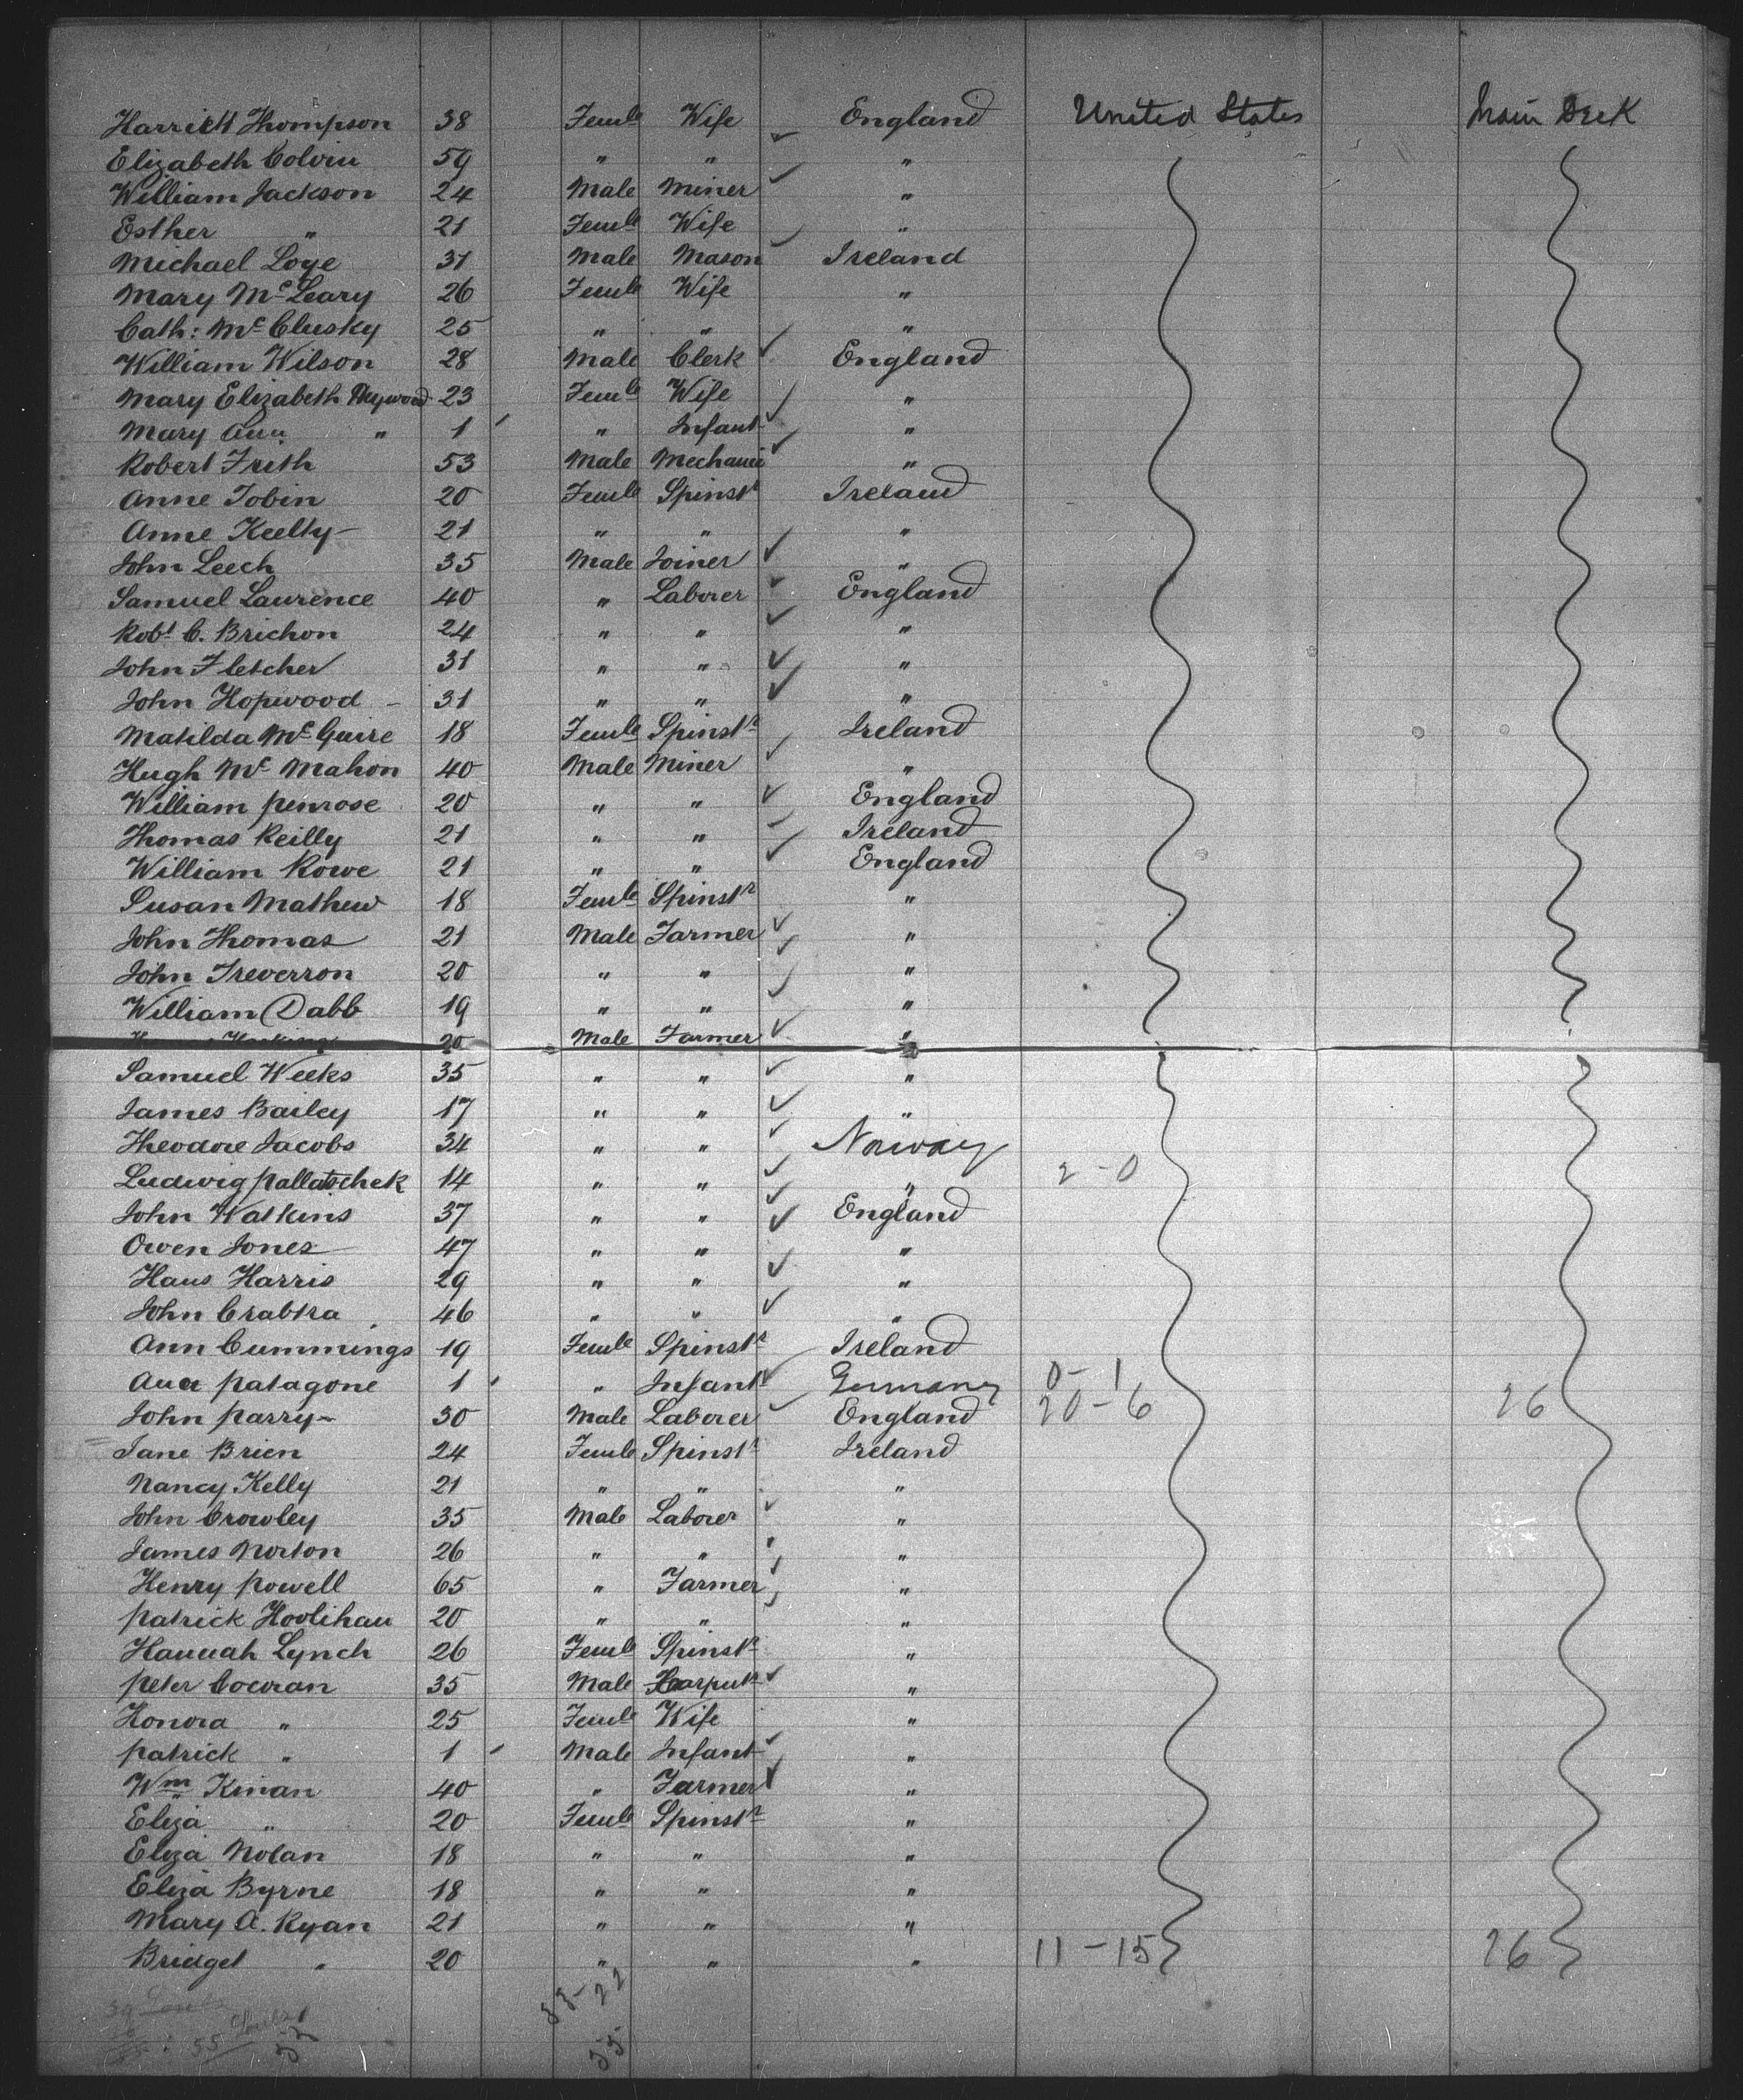 Harriett Thompson 38 Femle Wife England United States Main Deck
Elizabeth Colvin 59 " " "
William Jackson 24 Male Miner "
Esther " 21 Femle Wife "
Michael Loye 31 Male Mason Ireland
Mary McLeary 26 Femle Wife "
Cath: McClusky 25 " " "
William Wilson 28 Male Clerk England
Mary Elizabeth Heywood 23 Femle Wife "
Mary Ann " 1 " Infant "
Robert Frith 53 Male Mechanic "
Anne Tobin 20 Femle Spinstr Ireland
Anne Keelty 21 " " "
John Leech 35 Male Joiner "
Samuel Laurence 40 " Laborer England
Robt C. Brichon 24 " " "
John Fletcher 31 " " "
John Hopwood 31 " " "
Matilda McGuire 18 Femle Spinstr Ireland
Hugh McMahon 40 Male Miner "
William Penrose 20 " " England
Thomas Reilly 21 " " Ireland
William Rowe 21 " " England
Susan Mathew 18 Femle Spinstr "
John Thomas 21 Male Farmer "
John Treverron 20 " " "
William Dabb 19 " " "
20 Male Farmer "
Samuel Weeks 35 " " "
James Bailey 17 " " "
Theodore Jacobs 34 " " Norway
Ludwig Pallatschek 14 " " " 2-0
John Watkins 37 " " England
Owen Jones 47 " " "
Hans Harris 29 " " "
John Crabtra 46 " " "
Ann Cummings 19 Femle Spinstr Ireland
Ana Patagone 1 " Infant Germany 0-1
John Parry 30 Male Laborer England 20-6 26
Jane Brien 24 Femle Spinstr Ireland
Nancy Kelly 21 " " "
John Crowley 35 Male Laborer "
James Norton 26 " " "
Henry Powell 65 " Farmer "
Patrick Hoolihan 20 " " "
Hannah Lynch 26 Femle Spinstr "
Peter Cocoran 35 Male Carpntr "
Honora " 25 Femle Wife "
Patrick " 1 Male Infant "
Wm Kinan 40 " Farmer "
Eliza " 20 Femle Spinstr "
Eliza Nolan 18 " " "
Eliza Byrne 18 " " "
Mary A. Ryan 21 " " "
Bridget " 20 " " " 11-15 26
33-22
55